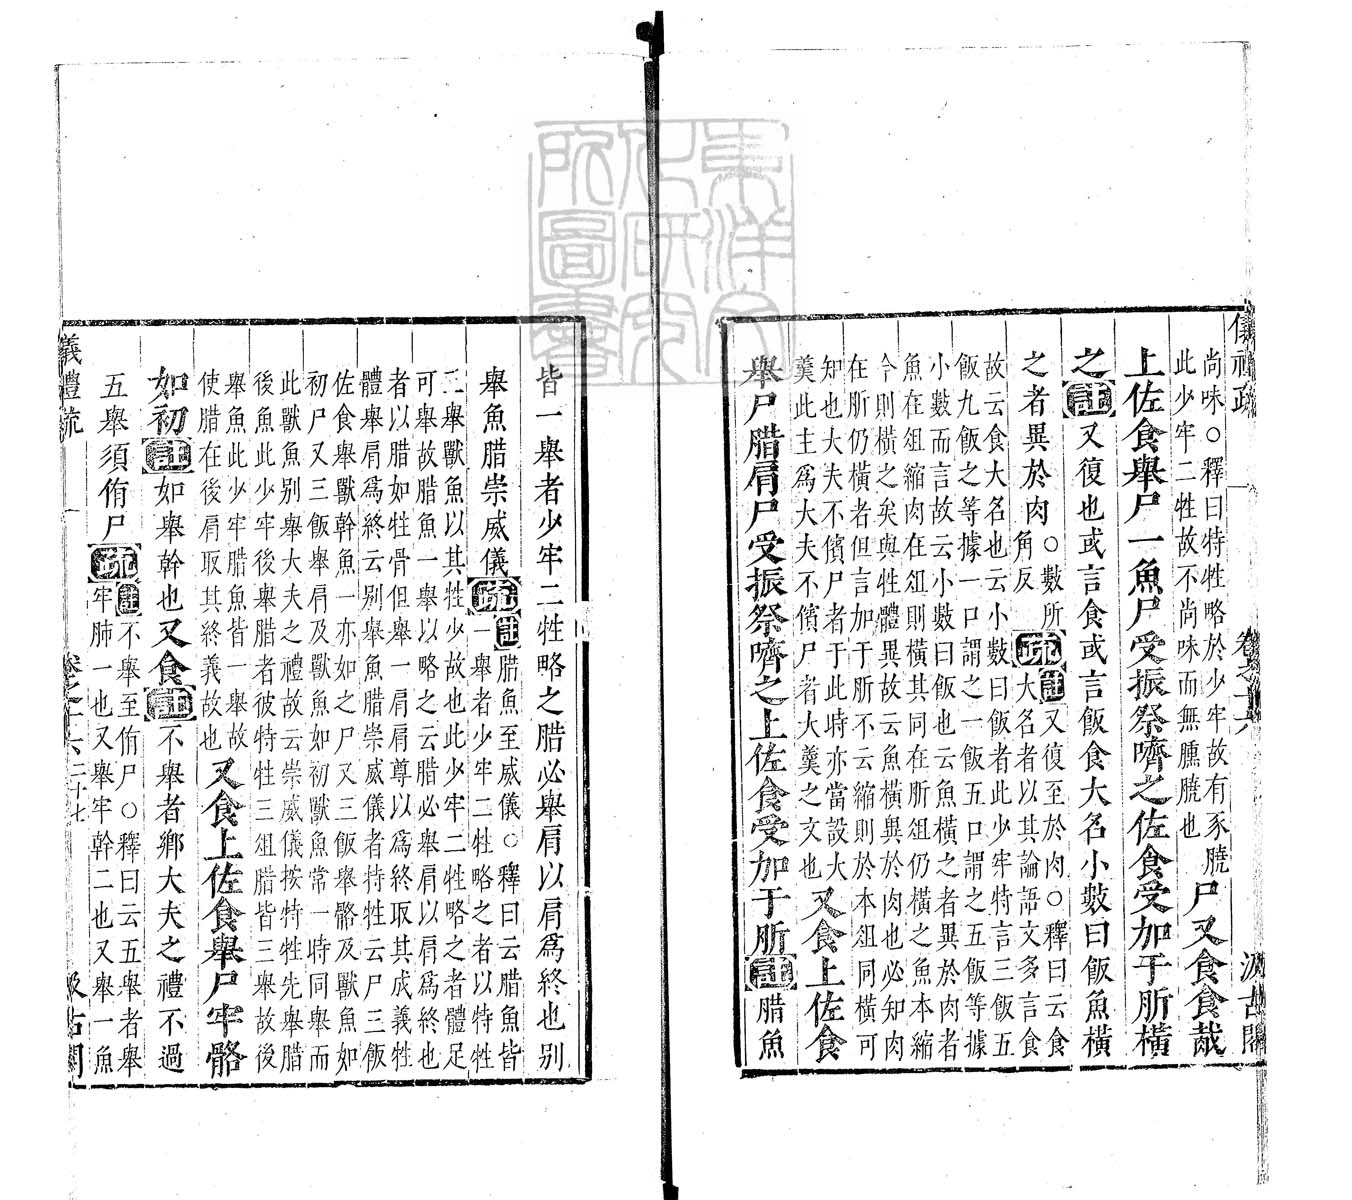 尚味○釋曰特牲略於少牢故有豕膮
此少牢二牲故不尚味而無臐膮也
尸又食食胾
上佐食舉尸一魚尸受振祭嚌之佐食受加于肵橫
之註又復也或言食或言飯食大名小數曰飯魚橫
之者異於肉
○數所
角反
疏註又復至於肉○釋曰云食
大名者以其論語文多言食
故云食大名也云小數曰飯者此少牢特言三飯五
飯九飯之等據一口謂之一飯五口謂之五飯等據
小數而言故云小數曰飯也云魚橫之者異於肉者
魚在俎縮肉在俎則橫其同在肵俎仍橫之魚本縮
今則橫之矣與牲體異故云魚橫異於肉也必知肉
在肵仍橫者但言加于肵不云縮則於本俎同橫可
知也大夫不儐尸者于此時亦當設大
羹此主為大夫不儐尸者大羹之文也
又食上佐食
舉尸腊肩尸受振祭嚌之上佐食受加于肵註腊魚
皆一舉者少牢二牲略之腊必舉肩以肩為終也別
舉魚腊崇威儀疏註腊魚至威儀○釋曰云腊魚皆
一舉者少牢二牲略之者以特牲
三舉獸魚以其牲少故也此少牢二牲略之者體足
可舉故腊魚一舉以略之云腊必舉肩以肩為終也
者以腊如牲骨但舉一肩肩尊以為終取其成義牲
體舉肩為終云別舉魚腊崇威儀者特牲云尸三飯
佐食舉獸幹魚一亦如之尸又三飯舉骼及獸魚如
初尸又三飯舉肩及獸魚如初獸魚常一時同舉而
此獸魚別舉大夫之禮故云崇威儀按特牲先舉腊
後魚此少牢後舉腊者彼特牲三俎腊皆三舉故後
舉魚此少牢腊魚皆一舉故
使腊在後肩取其終義故也
又食上佐食舉尸牢骼
如初註如舉幹也又食註不舉者鄉大夫之禮不過
五舉須侑尸疏註不舉至侑尸○釋曰云五舉者舉
牢肺一也又舉牢幹二也又舉一魚
儀禮疏
卷之十六
二十七
汲古閣
東洋文化研究所圖書